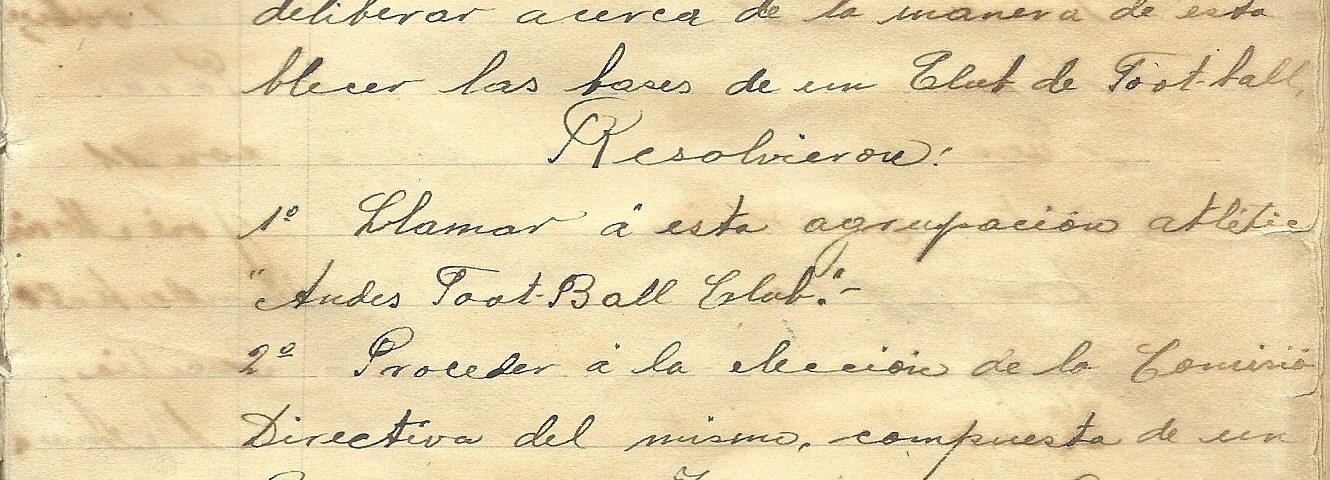 deliberar acerca de la manera de esta
blecer las bases de un Club de Foot-ball,
Resolvieron:
1º Llamar á esta agrupación atlétic
"Andes Foot-Ball Club."-
2º Proceder á la elección de la Comisió
Directiva del mismo, compuesta de un